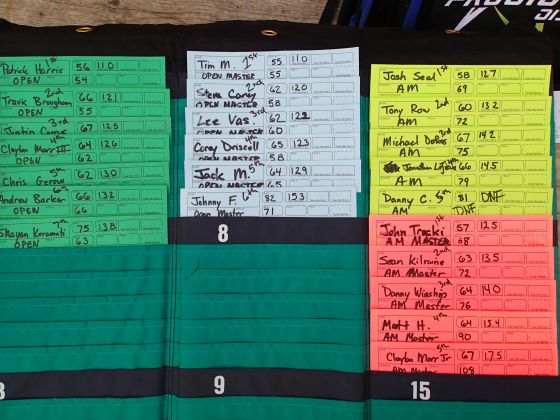 Patrick Harris 1st 56 110
OPEN 54
Travis Brougham 2nd 66 121
OPEN 55
Justin 3rd 67 125
OPEN 58
Clayton Marr III 4th 64 126
OPEN 62
Chris 5th 62 130
OPEN
Andrew Barker 6th 66 132
OPEN 66
7th 75 138
OPEN 63
Tim M. 1st 55 110
OPEN MASTER 55
Steve Corey 2nd 62 120
OPEN MASTER 58
Lee Vas. 3rd 62 122
OPEN MASTER 60
Corey Driscoll 4th 65 123
OPEN MASTER 58
Jack M. 5th 64 129
OPEN MASTER 65
Johnny F. 6th 82 153
Open Master 71
8
Josh Seal 1st 58 127
AM 69
Tony Row 2nd 60 132
AM 72
Michael 3rd 67 142
AM 75
Jonathan 4th 66 145
AM 79
Danny C. 5th 81 DNF
AM DNF
John 1st 57 125
AM MASTER 68
Sean Kilraine 2nd 63 135
AM Master 72
Danny Winship 3rd 64 140
AM Master 76
Matt H. 4th 64 154
AM Master 90
Clayton Marr Jr 5th 67 175
AM Master 108
9
15